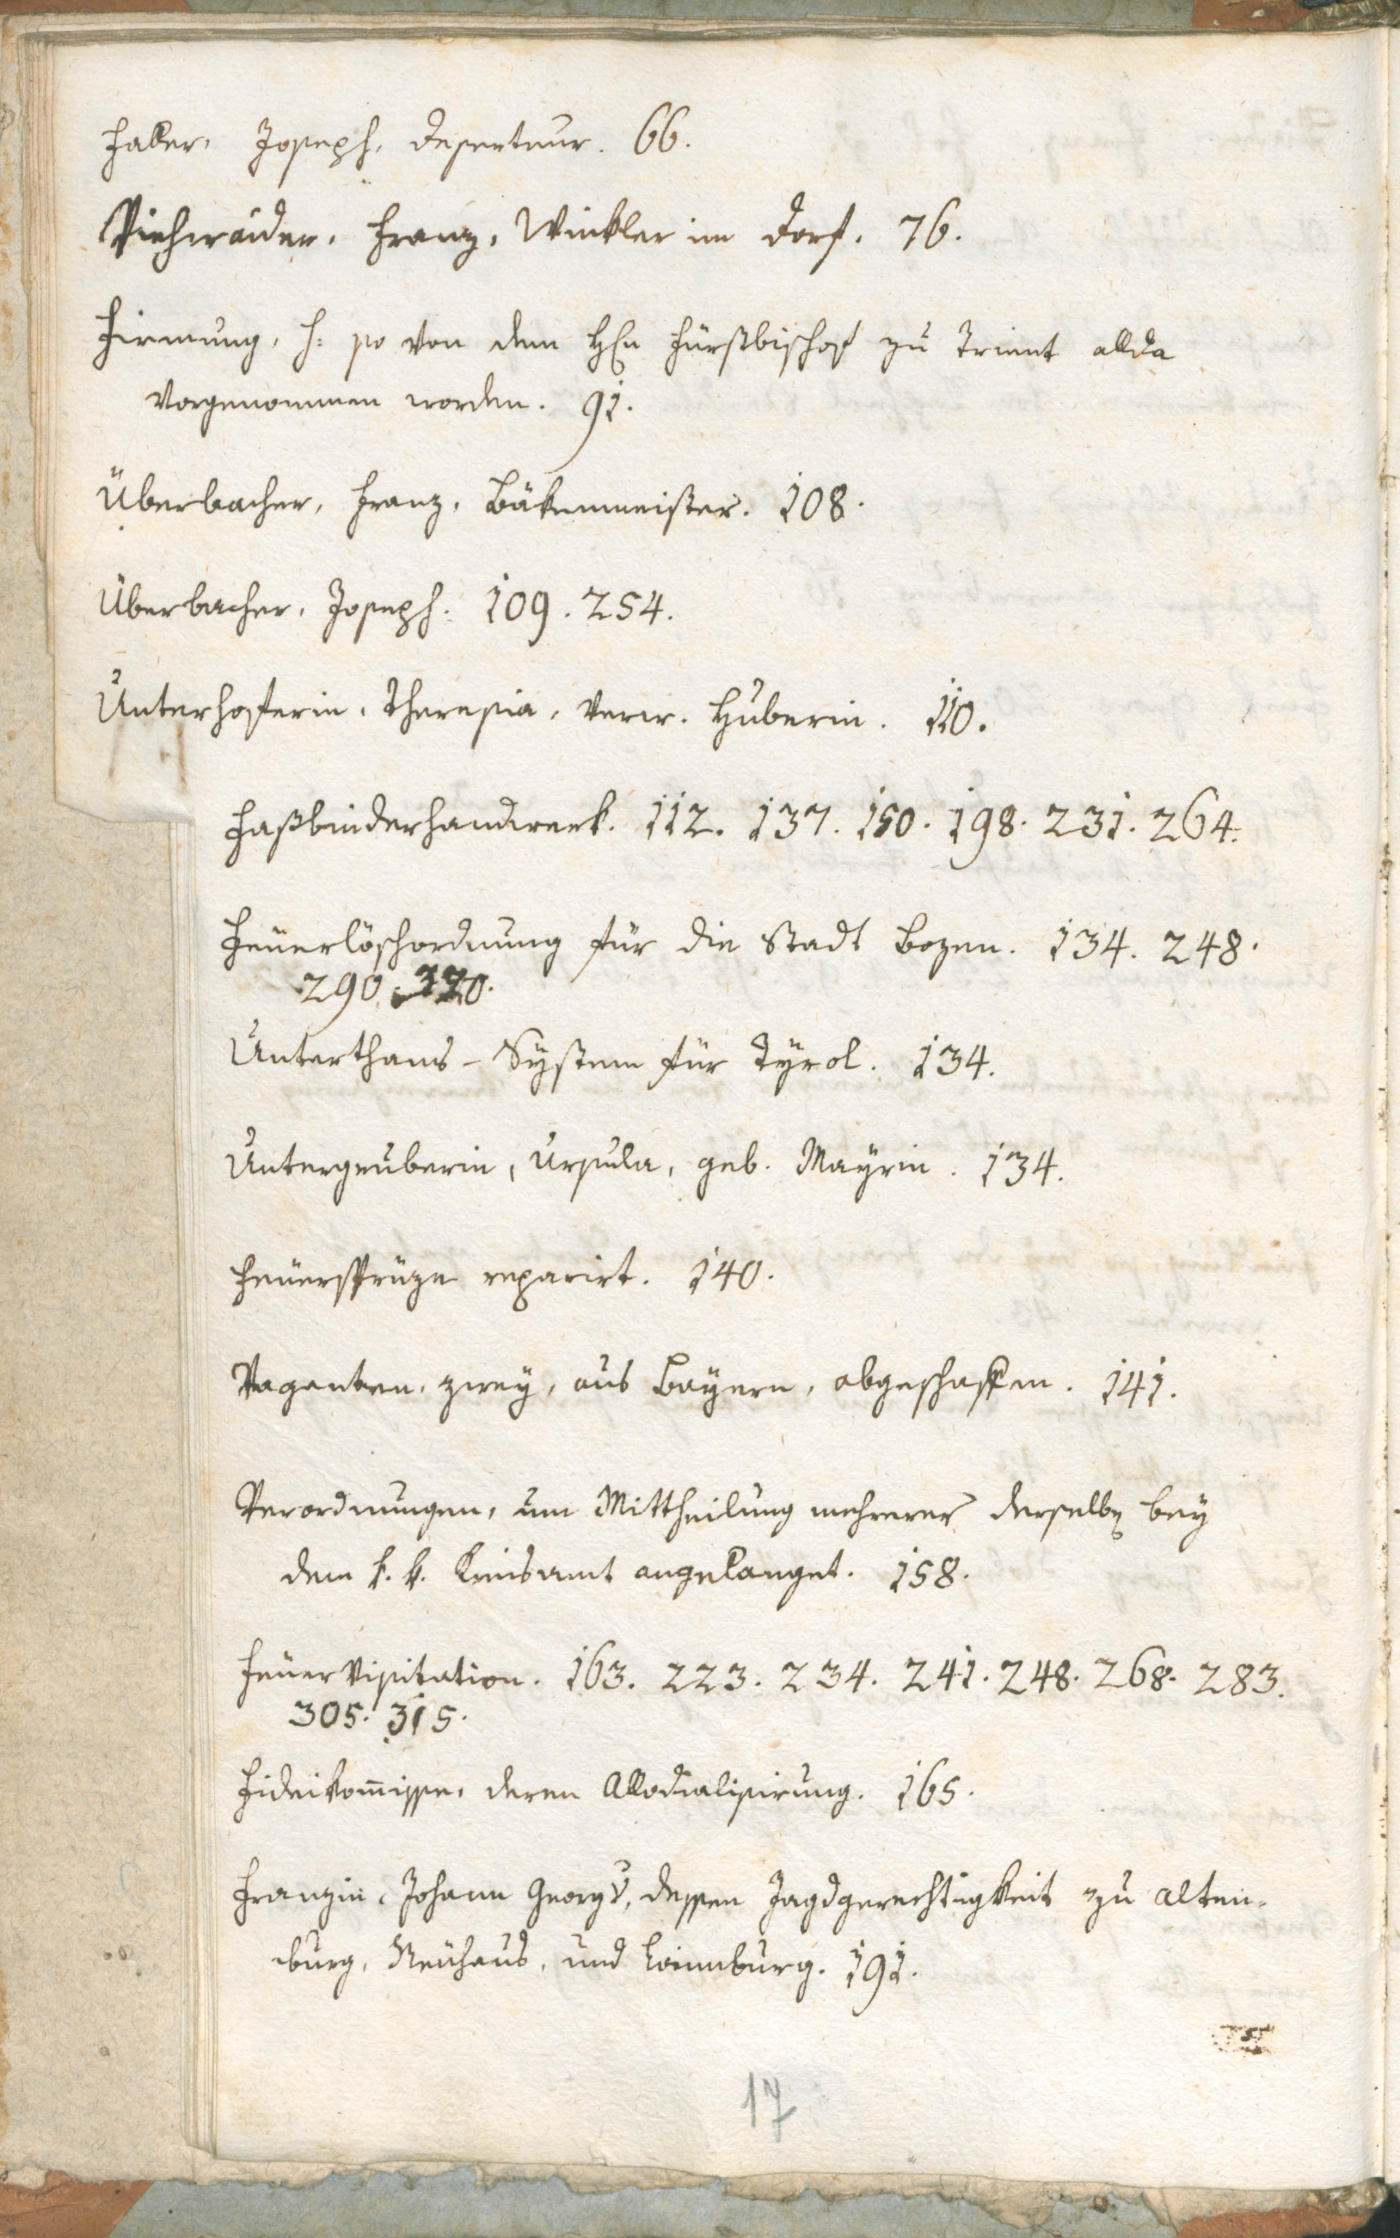 Faller, Joseph, Deserteur. 66.
Viehweider, Franz, Winkler im Dorf. 76.
Firmung, h: so von dem H[err]n Fürstbischof zu Trient allda
vorgenommen worden. 91.
Überbacher, Franz, Bäkenmeister. 108.
Überbacher, Joseph. 109. 254.
Unterhoferin, Theresia, verw. Huberin. 110.
Faßbinderhandwerk. 112. 137. 150. 198. 231. 264.
Feuerlöschordnung für die Stadt Bozen. 134. 248.
290. 320.
Unterthans-System für Tyrol. 134.
Untergruberin, Ursula, geb. Mayrin. 134.
Feuersprüze reparirt. 140.
Vaganten, zwey, aus Bayern, abgeschaffen. 141.
Verordnungen, um Mittheilung mehrerer derselben bey
dem k. k. Kreisamt angelanget. 158.
Feuer Visitation. 163. 223. 234. 241. 248. 268. 283.
305. 315.
Fideikom̄isse, deren Allodialisirung. 165.
Franzin, Johann Georg v, dessen Jagdgerechtigkeit zu Alten-
burg, Neuhaus, und Leimburg. 191.
17